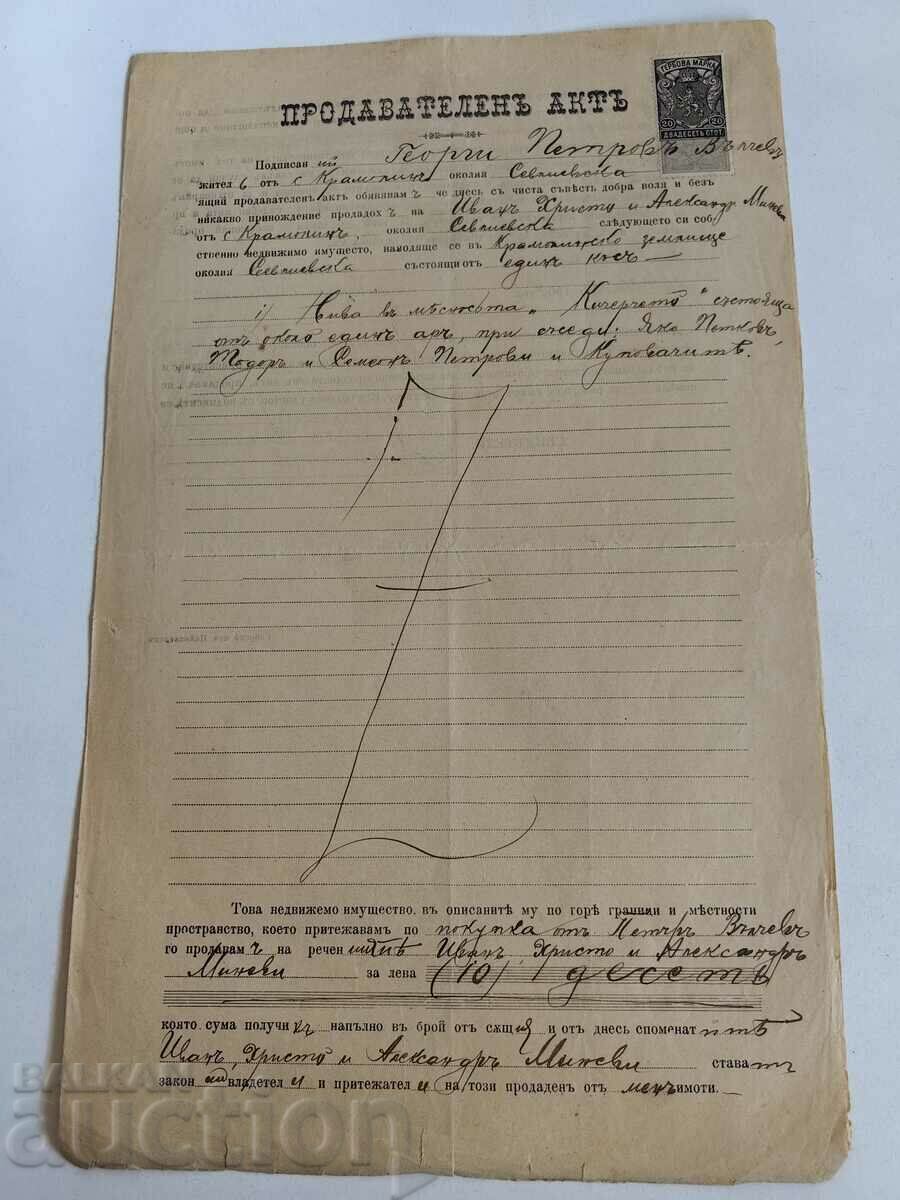 ПРОДАВАТЕЛЕНЪ АКТЪ
ГЕРБОВА МАРКА
20 20
ДВАДЕСЕТЬ СТОТ.
Подписан ий Георги Петровъ Вълчевъ
жител ь от с Крамолинъ околия Севлиевска
ящий продавателенъ актъ обявявам ъ че днесь съ чиста съвѣсть добра воля и безъ
никакво принождение продадох ъ на Иванъ Христо и Александръ Миневи
отъ с Крамолинъ, околия Севлиевска слѣдующето си соб
ственно недвижимо имущество, находяще се въ Крамолинско землище
околия Севлиевска състоящи отъ единъ късъ
1) Нива въ мѣстностьта „Кичерчето" състояща
отъ около единъ аръ, при съседи: Яко Петковъ,
Тодоръ и Семеонъ Петрови и Куповачитѣ.
Това недвижемо имущество, въ описанитѣ му по горѣ граници и мѣстности
пространство, което притежавамъ по покупка отъ Петъръ Вълчевъ
го продавам ъ на речен итѣ Иванъ, Христо и Александръ
Миневи за лева (10) десеть
която сума получи хъ напълно въ брой отъ сѫщи и отъ днесь споменат итѣ
Иванъ, Христо и Александръ Миневи става тъ
закон ни владетел и и притежател и на този продаденъ отъ менъ имоти.
БАЛКАН
auction